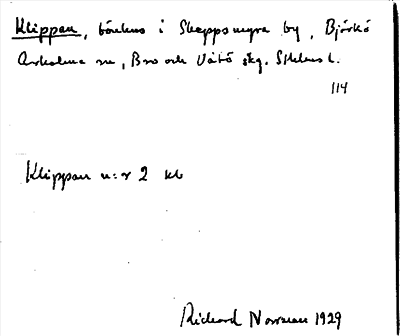 Klippan, båthus i Skeppsmyra by, Björkö
Arholma sn, Bro och Vätö skg. Sthlms l.
114
Klippan n:r 2 kb
Rickard Norrman 1929